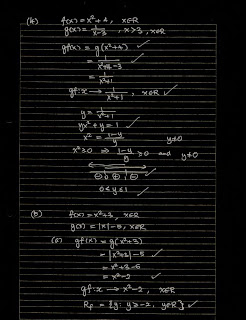 (4) f(x) = x² + 4, x∈R
g(x) = 1/(x-3), x>3, x∈R
gf(x) = g(x²+4)
= 1/(x²+4-3) ✓
= 1/(x²+1)
gf: x → 1/(x²+1), x∈R ✓
y = 1/(x²+1)
yx² + y = 1 ✓
x² = (1-y)/y y≠0
x²≥0 ⇒ (1-y)/y ≥ 0 and y≠0 ✓
⊖ 0 ⊕ 1 ⊖
0<y≤1 ✓
(5) f(x) = x²+3, x∈R
g(x) = |x|-5, x∈R
(a) gf(x) = g(x²+3)
= |x²+3|-5 ✓
= x²+3-5
= x²-2 ✓
gf: x → x²-2, x∈R
= {y: y≥-2, y∈R} ✓